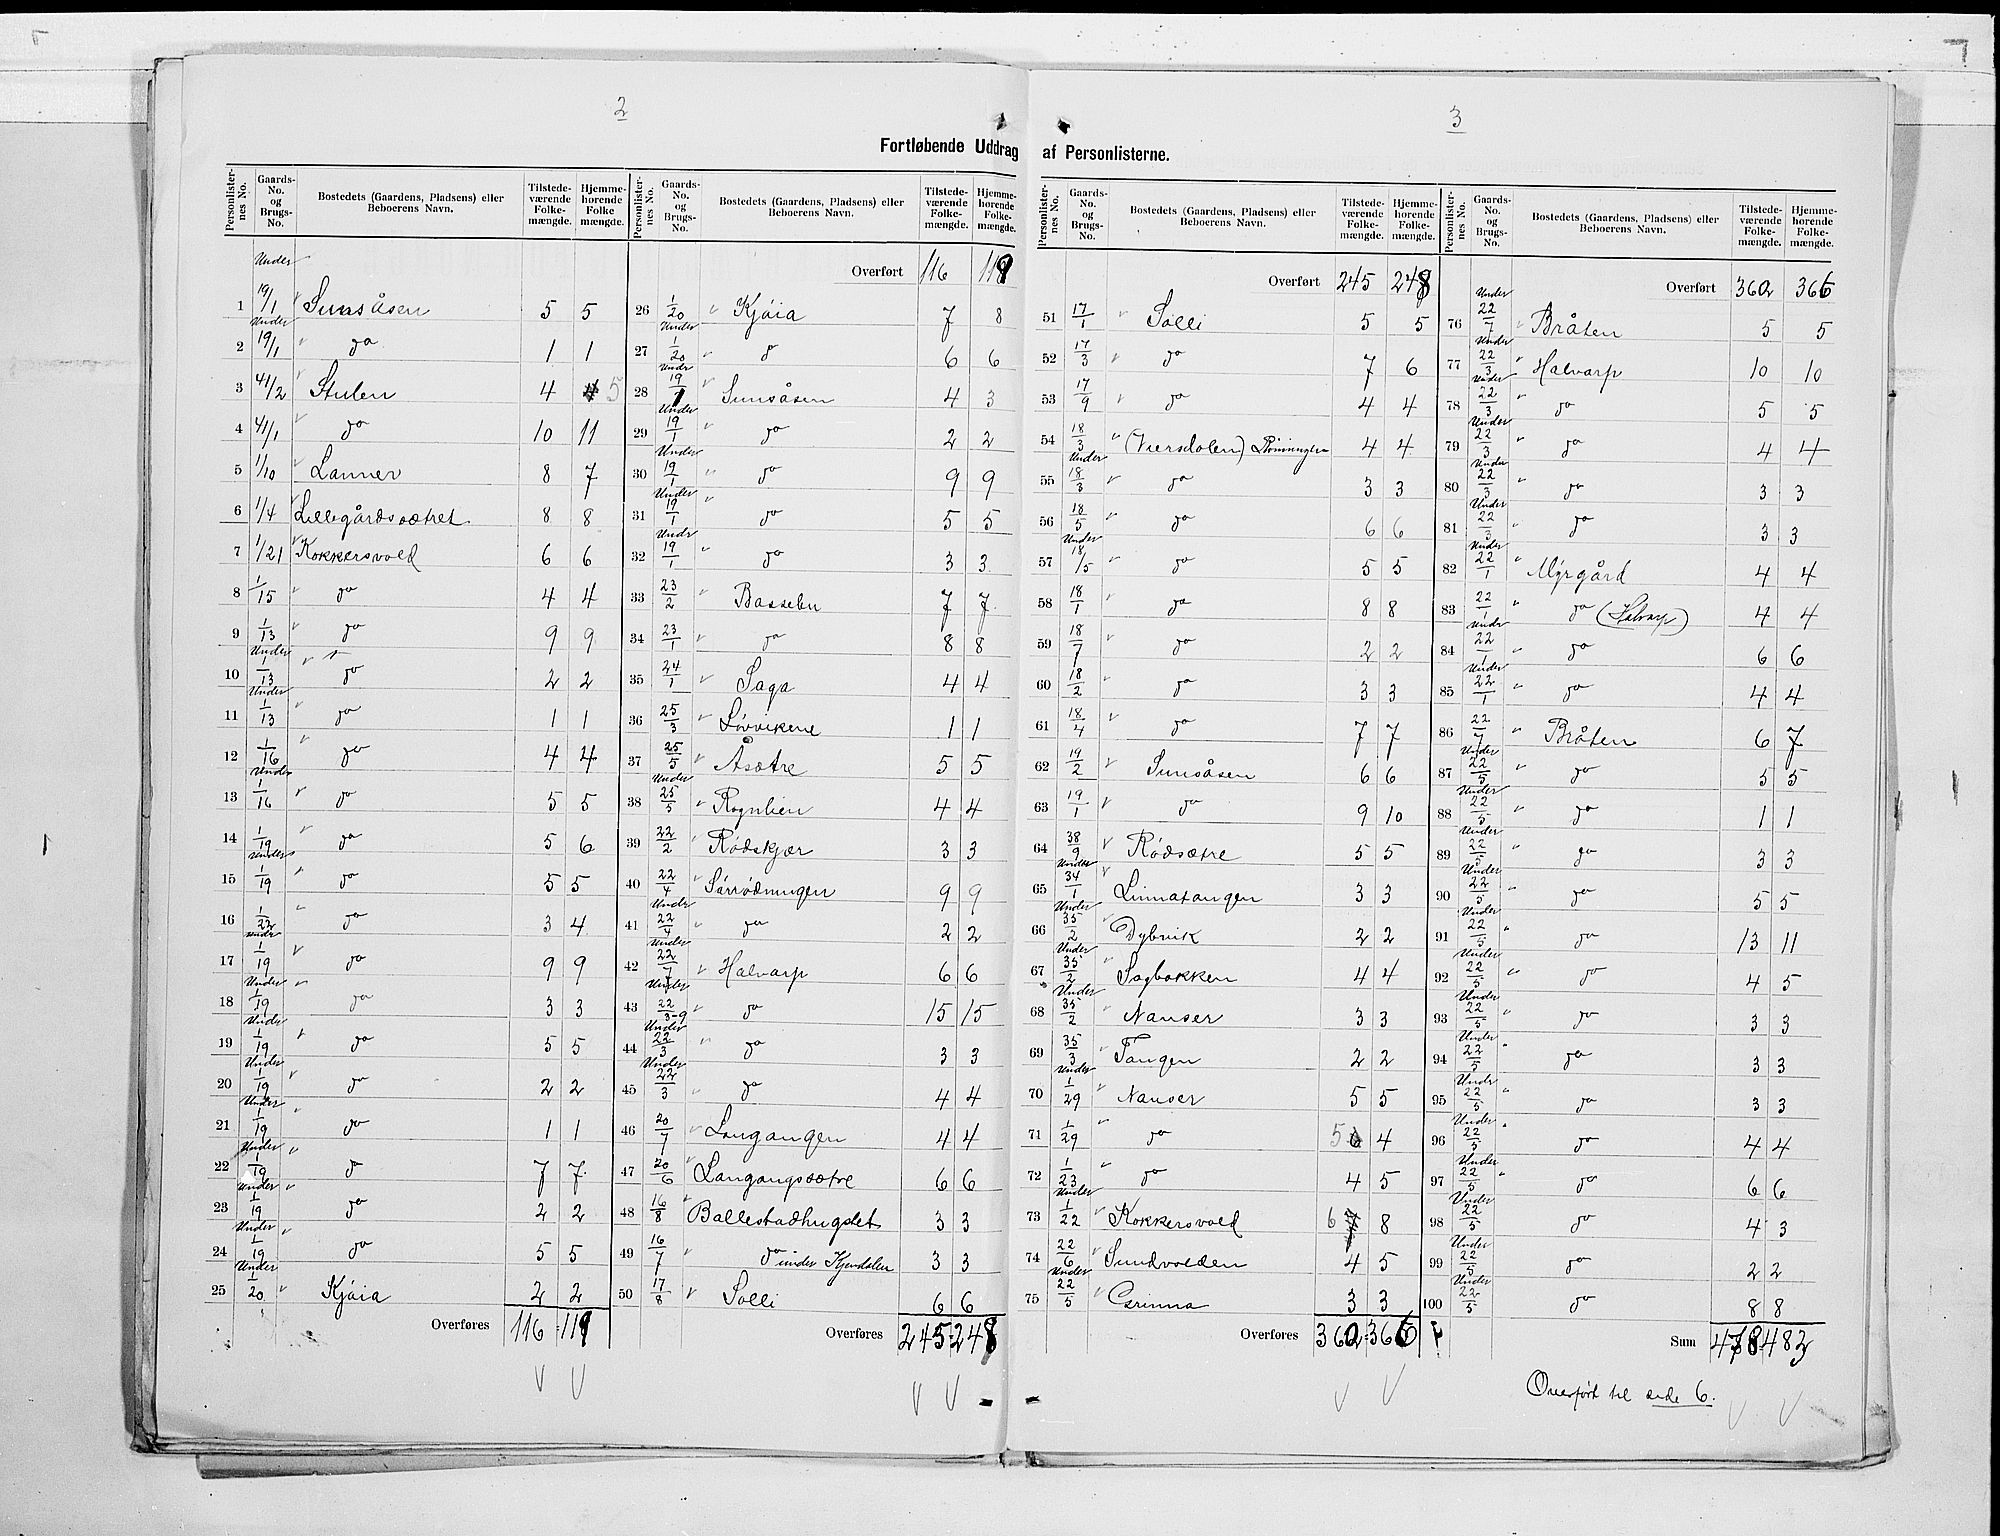 2
3
Fortløbende Uddrag af Personlisterne.
Personlister-nes No. Gaards-No. og Brugs-No. Bostedets (Gaardens, Pladsens) eller Beboerens Navn. Tilstede-værende Folke-mængde. Hjemme-hørende Folke-mængde.
Under
1 19/1 " Sunsåsen 5 5
Under
2 19/1 " do 1 1
3 41/2 " Stulen 4 4 5
4 41/1 " do 10 11
5 1/10 " Lanner 8 7
6 1/4 " Lillegårdssætret 8 8
7 1/21 " Kokkersvold 6 6
8 1/15 " do 4 4
9 1/13 " do 9 9
Under
10 1/13 " do 2 2
Under
11 1/13 " do 1 1
12 1/16 " do 4 4
Under
13 1/16 " do 5 5
14 1/19 " do 5 6
Under
15 1/19 " do 5 5
16 1/22 " do 3 4
Undr
17 1/19 " do 9 9
Under
18 1/19 " do 3 3
Undr
19 1/19 " do 5 5
Under
20 1/19 " do 2 2
Under
21 1/19 " do 1 1
Under
22 1/19 " do 7 7
Under
23 1/19 " do 2 2
Under
24 1/19 " do 5 5
Under
25 1/20 " Kjøia 2 2
Overføres 116 119
Personlister-nes No. Gaards-No. og Brugs-No. Bostedets (Gaardens, Pladsens) eller Beboerens Navn. Tilstede-værende Folke-mængde. Hjemme-hørende Folke-mængde.
Overført 116 119
26 1/20 " Kjøia 7 8
Under
27 1/20 " do 6 6
Undr
28 19/1 " Sunsåsen 4 3
Under
29 19/1 " do 2 2
Under
30 19/1 " do 9 9
Under
31 19/1 " do 5 5
Undr
32 19/1 " do 3 3
33 23/2 " Bassebu 7 7
34 23/1 " do 8 8
35 24/1 " Saga 4 4
36 25/3 " Løvvikene 1 1
37 25/5 " Åsætre 5 5
Under
38 25/5 " Rognlien 4 4
39 22/2 " Rødskjær 3 3
40 22/4 " Sørrødningen 9 9
Undr
41 22/4 " do 2 2
Under
42 22/7 " Halvarp 6 6
Under
43 22/3-9 " do 15 15
Under
44 22/3 " do 3 3
Under
45 22/3 " do 4 4
46 20/7 " Langangen 4 4
47 20/6 " Langangssætre 6 6
48 16/8 " Ballestadhugstet 3 3
49 16/7 " do under Kjendalen 3 3
50 17/8 " Solli 6 6
Overføres 245 248
Personlister-nes No. Gaards-No. og Brugs-No. Bostedets (Gaardens, Pladsens) eller Beboerens Navn. Tilstede-værende Folke-mængde. Hjemme-hørende Folke-mængde.
Overført 245 248
51 17/1 " Solli 5 5
52 17/3 " do 7 6
53 17/9 " do 4 4
54 18/3 " (Viersdalen) Rønningen 4 4
Under
55 18/3 " do 3 3
56 18/5 " do 6 6
Under
57 18/5 " do 5 5
58 18/1 " do 8 8
59 18/7 " do 2 2
60 18/2 " do 3 3
61 18/4 " do 7 7
62 19/2 " Sunsåsen 6 6
63 19/1 " do 9 10
64 38/9 " Rødsætre 5 5
Under
65 34/1 " Linnatangen 3 3
Under
66 35/2 " Dybvik 2 2
Under
67 35/2 " Sagbakken 4 4
Under
68 35/2 " Nanser 3 3
69 35/3 " Tangen 2 2
Under
70 1/29 " Nanser 5 5
71 1/29 " do 5 6 4
72 1/23 " do 4 5
Under
73 1/22 " Kokkersvold 6 7 8
74 22/6 " Sundvolden 4 5
Under
75 22/5 " Corinna 3 3
Overføres 362 366
Personlister-nes No. Gaards-No. og Brugs-No. Bostedets (Gaardens, Pladsens) eller Beboerens Navn. Tilstede-værende Folke-mængde. Hjemme-hørende Folke-mængde.
Overført 362 366
Under
76 22/7 " Bråten 5 5
Under
77 22/3 " Halvarp 10 10
Under
78 22/3 " do 5 5
Under
79 22/3 " do 4 4
Under
80 22/3 " do 3 3
Under
81 22/3 " do 3 3
Under
82 22/1 " Myrgård 4 4
83 22/1 " do (Halvarp) 4 4
Undr
84 22/1 " do 6 6
Under
85 22/1 " do 4 4
86 22/7 " Bråten 6 7
Under
87 22/5 " do 5 5
Under
88 22/5 " do 1 1
Under
89 22/5 " do 3 3
Under
90 22/5 " do 5 5
Under
91 22/5 " do 13 11
Under
92 22/5 " do 4 5
Under
93 22/5 " do 3 3
Under
94 22/5 " do 3 3
Undr
95 22/5 " do 3 3
Under
96 22/5 " do 4 4
Under
97 22/5 " do 6 6
Under
98 22/5 do 4 3
Under
99 22/5 do 2 2
Under
100 22/5 do 8 8
Sum 478 483
Overført til side 6.